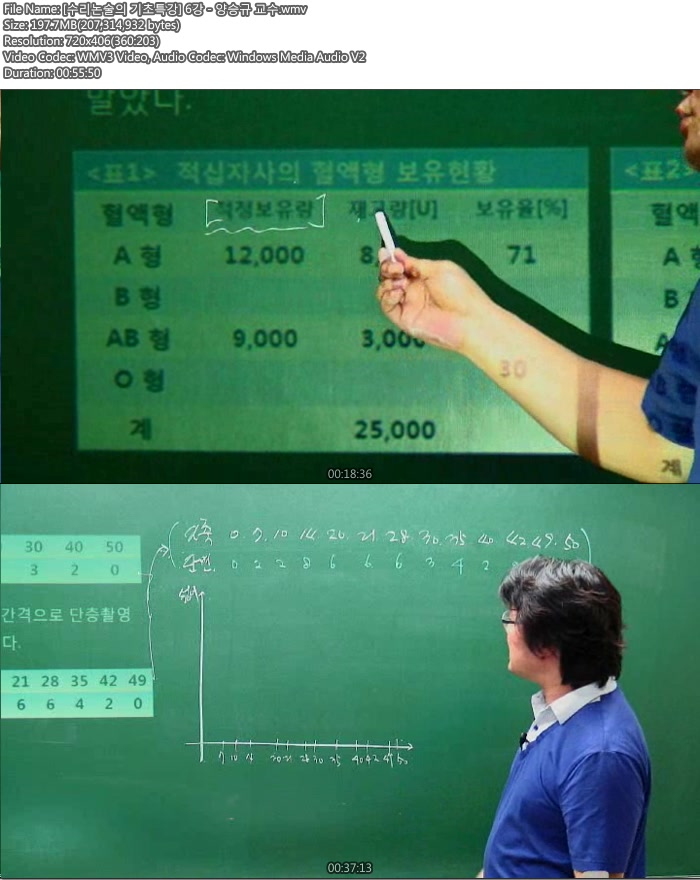 File Name: [수리논술의 기초특강] 6강 - 양승규 교수.wmv
Size: 197.7MB(207,314,932 bytes)
Resolution: 720x406(360:203)
Video Codec: WMV3 Video, Audio Codec: Windows Media Audio V2
Duration: 00:55:50
말았나.
<표1> 적십자사의 혈액형 보유현황
혈액형 적정보유량 재고량[U] 보유율[%]
A 형 12,000 8, 71
B 형
AB 형 9,000 3,000
O 형
계 25,000
30
<표2>
혈액
A 형
B
A
계
00:18:36
30 40 50
3 2 0
간격으로 단층촬영
다.
21 28 35 42 49
6 6 4 2 0
0 7 10 14 20 21 28 30 35 40 42 49 50
단면 0 2 2 8 6 6 6 3 4 2
7 10 14 20 21 28 30 35 40 42 49 50
00:37:13